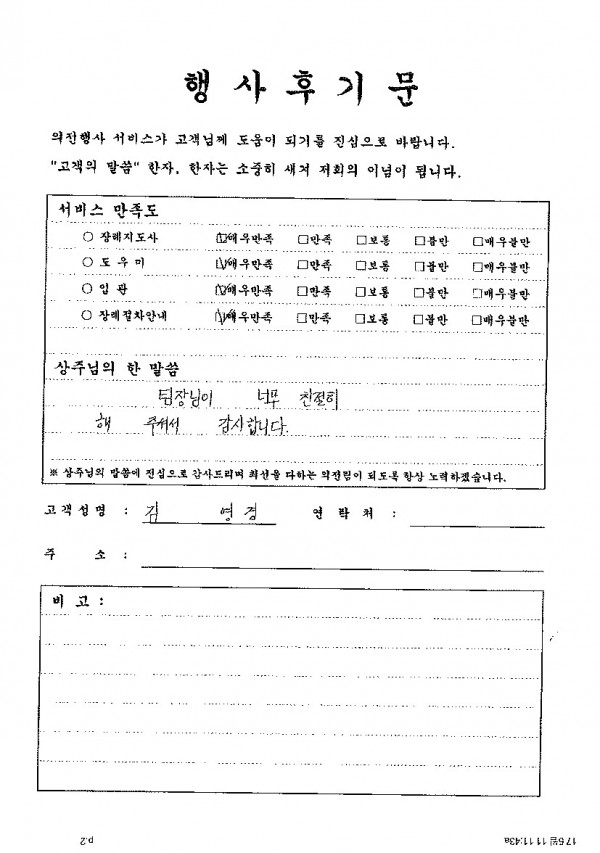 행사후기문
의전행사 서비스가 고객님께 도움이 되기를 진심으로 바랍니다.
"고객의 말씀" 한자, 한자는 소중히 새겨 저희의 이념이 됩니다.
서비스 만족도
○ 장례지도사 ☑매우만족 □만족 □보통 □불만 □매우불만
○ 도우미 ☑매우만족 □만족 □보통 □불만 □매우불만
○ 입관 ☑매우만족 □만족 □보통 □불만 □매우불만
○ 장례절차안내 ☑매우만족 □만족 □보통 □불만 □매우불만
상주님의 한 말씀
팀장님이 너무 친절히
해 주셔서 감사합니다.
※ 상주님의 말씀에 진심으로 감사드리며 최선을 다하는 의전팀이 되도록 항상 노력하겠습니다.
고객성명 : 김 영경 연락처 :
주 소 :
비고 :
17 6월 11 11:43a
p.2